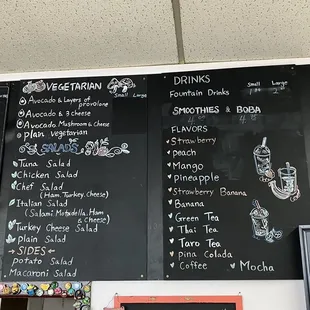 VEGETARIAN
Small Large
Avocado & Layers of
provolone
Avocado & 3 cheese
Avocado Mushroom & Cheese
plain vegetarian
SALADS
Tuna Salad
Chicken Salad
Chef Salad
(Ham, Turkey, Cheese)
Italian Salad
(Salami, Mortadella, Ham
& Cheese)
Turkey Cheese Salad
plain Salad
SIDES
potato Salad
Macaroni Salad
DRINKS
Small Large
Fountain Drinks
SMOOTHIES & BOBA
FLAVORS
Strawberry
peach
Mango
pineapple
Strawberry Banana
Banana
Green Tea
Thai Tea
Taro Tea
pina Colada
Coffee
Mocha